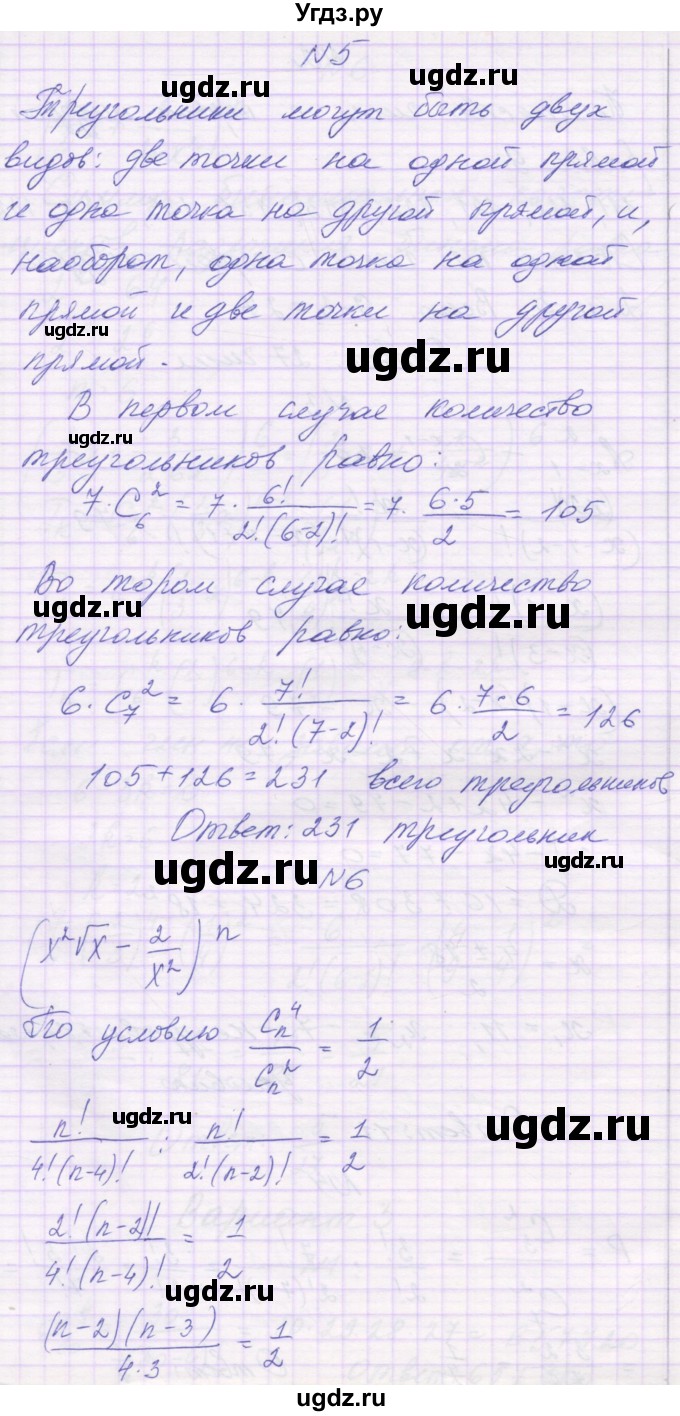 Угдз.ру
N5
Треугольники могут быть двух
видов: две точки на одной прямой
и одна точка на другой прямой, и,
наоборот, одна точка на одной
прямой и две точки на другой
ugdz.ru
ugdz.ru
прямой.
В первом случае количество
ugdz.ru
треугольников равно:
7·C₆² = 7· 6!/(2!·(6-2)!) = 7· (6·5)/2 = 105
Во тором случае количество
ugdz.ru
треугольников равно:
6·C₇² = 6· 7!/(2!·(7-2)!) = 6· (7·6)/2 = 126
105+126=231 всего треугольников
Ответ: 231 треугольник
ugdz.ru
ugdz.ru
N6
(x²√x - 2/x²)ⁿ
По условию Cₙ⁴/Cₙ² = 1/2
ugdz.ru
ugdz.ru
n!/(4!·(n-4)!) : n!/(2!·(n-2)!) = 1/2
2!(n-2)!/(4!(n-4)!) = 1/2
ugdz.ru
(n-2)(n-3)/(4·3) = 1/2
ugdz.ru